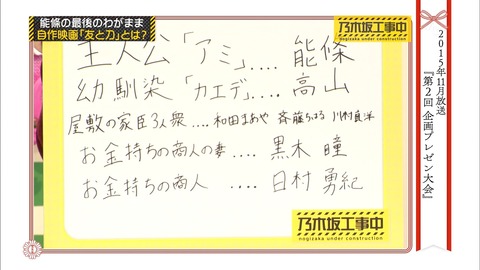 能條の最後のわがまま
自作映画「友と刀」とは?
乃木坂工事中
nogizaka under construction
2015年11月放送
『第2回 企画プレゼン大会』
主人公「アミ」‥‥ 能條
幼馴染「カエデ」‥‥ 高山
屋敷の家臣3人衆 ‥‥ 和田まあや 斉藤ちはる 川村真洋
お金持ちの商人の妻 ‥‥ 黒木 瞳
お金持ちの商人 ‥‥ 日村 勇紀
乃木坂工事中
nogizaka under construction